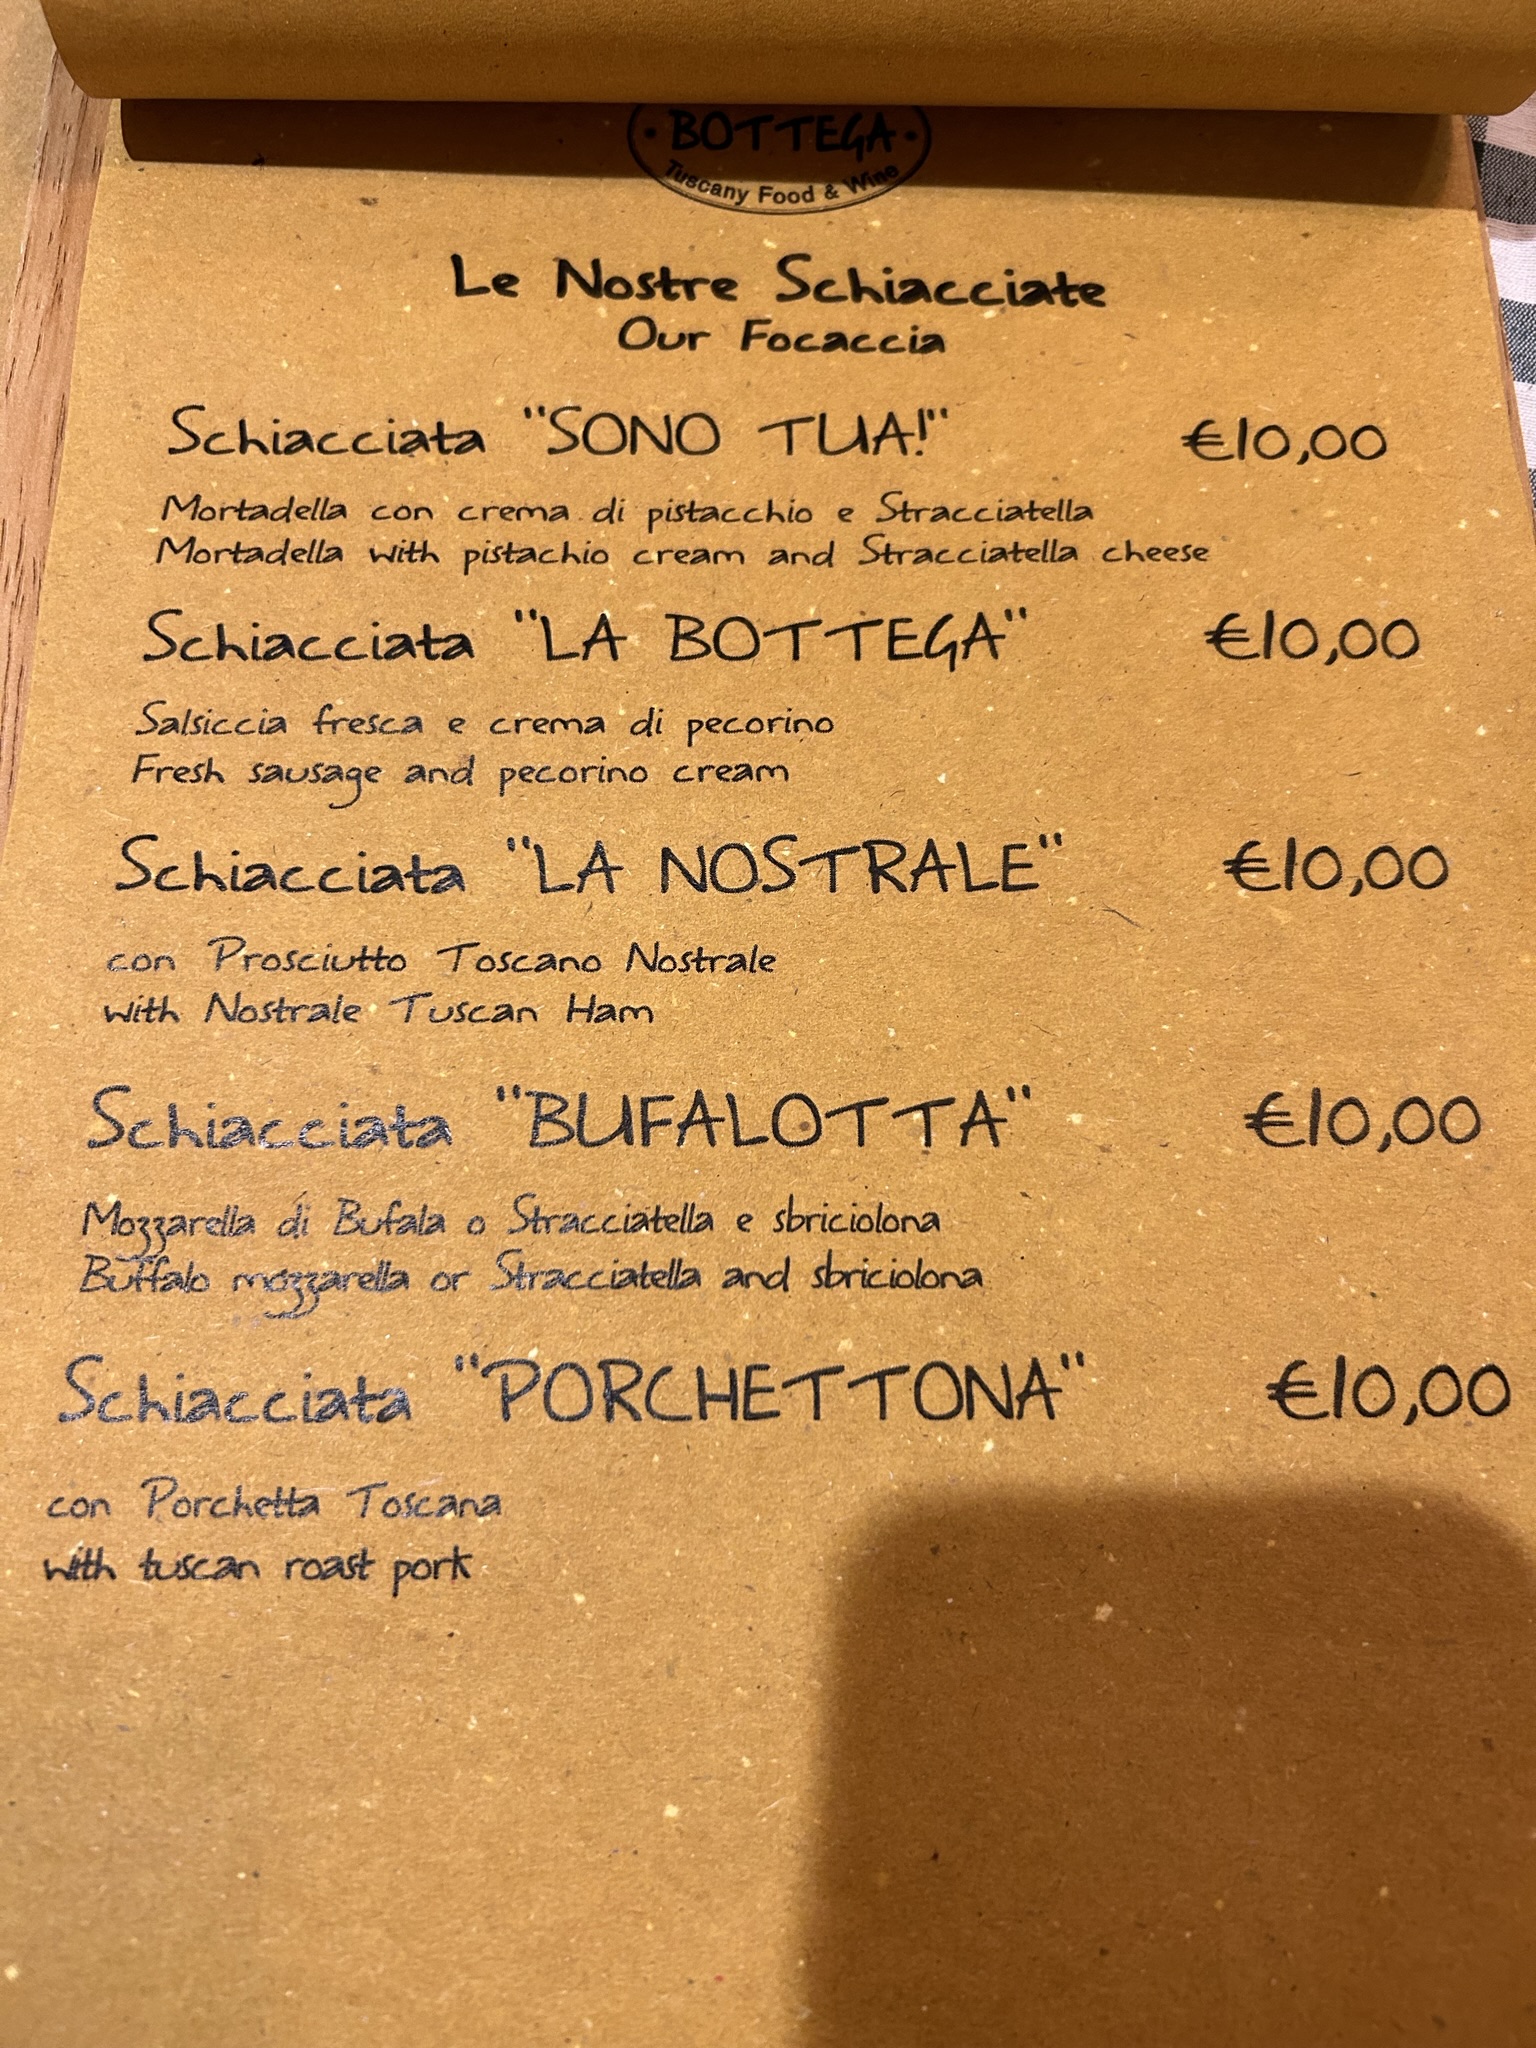 • BOTTEGA •
Tuscany Food & Wine
Le Nostre Schiacciate
Our Focaccia
Schiacciata "SONO TUA!" €10,00
Mortadella con crema di pistacchio e Stracciatella
Mortadella with pistachio cream and Stracciatella cheese
Schiacciata "LA BOTTEGA" €10,00
Salsiccia fresca e crema di pecorino
Fresh sausage and pecorino cream
Schiacciata "LA NOSTRALE" €10,00
con Prosciutto Toscano Nostrale
with Nostrale Tuscan Ham
Schiacciata "BUFALOTTA" €10,00
Mozzarella di Bufala o Stracciatella e sbriciolona
Buffalo mozzarella or Stracciatella and sbriciolona
Schiacciata "PORCHETTONA" €10,00
con Porchetta Toscana
with tuscan roast pork